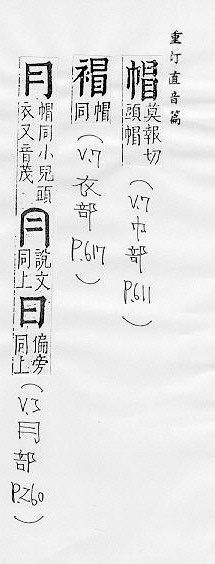 重訂直音篇
帽 莫報切
頭帽
(V.7 巾部 P.611)
帽同
(V.7 衣部 P.617)
冃 帽同小兒頭
衣又音茂
說文
同上
偏旁
同上
(V.3 冃部 P.260)